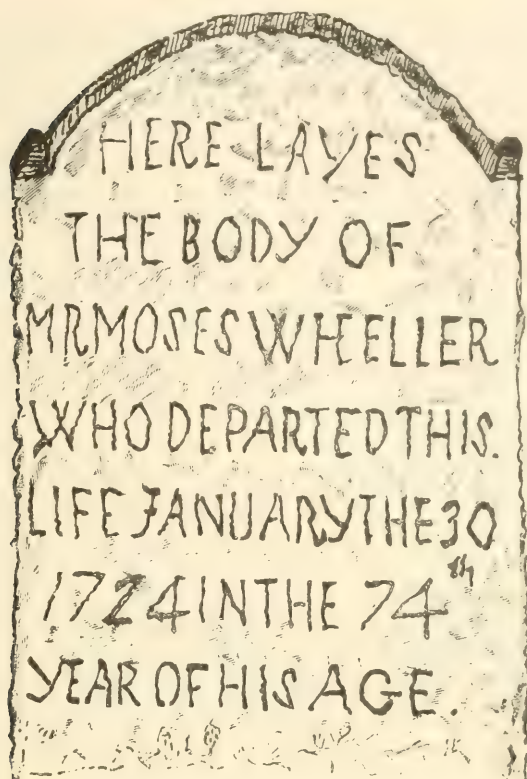 HERE LAYES
THE BODY OF
MR MOSES WHEELLER
WHO DEPARTED THIS.
LIFE JANUARY THE 30
1724 IN THE 74th
YEAR OF HIS AGE.